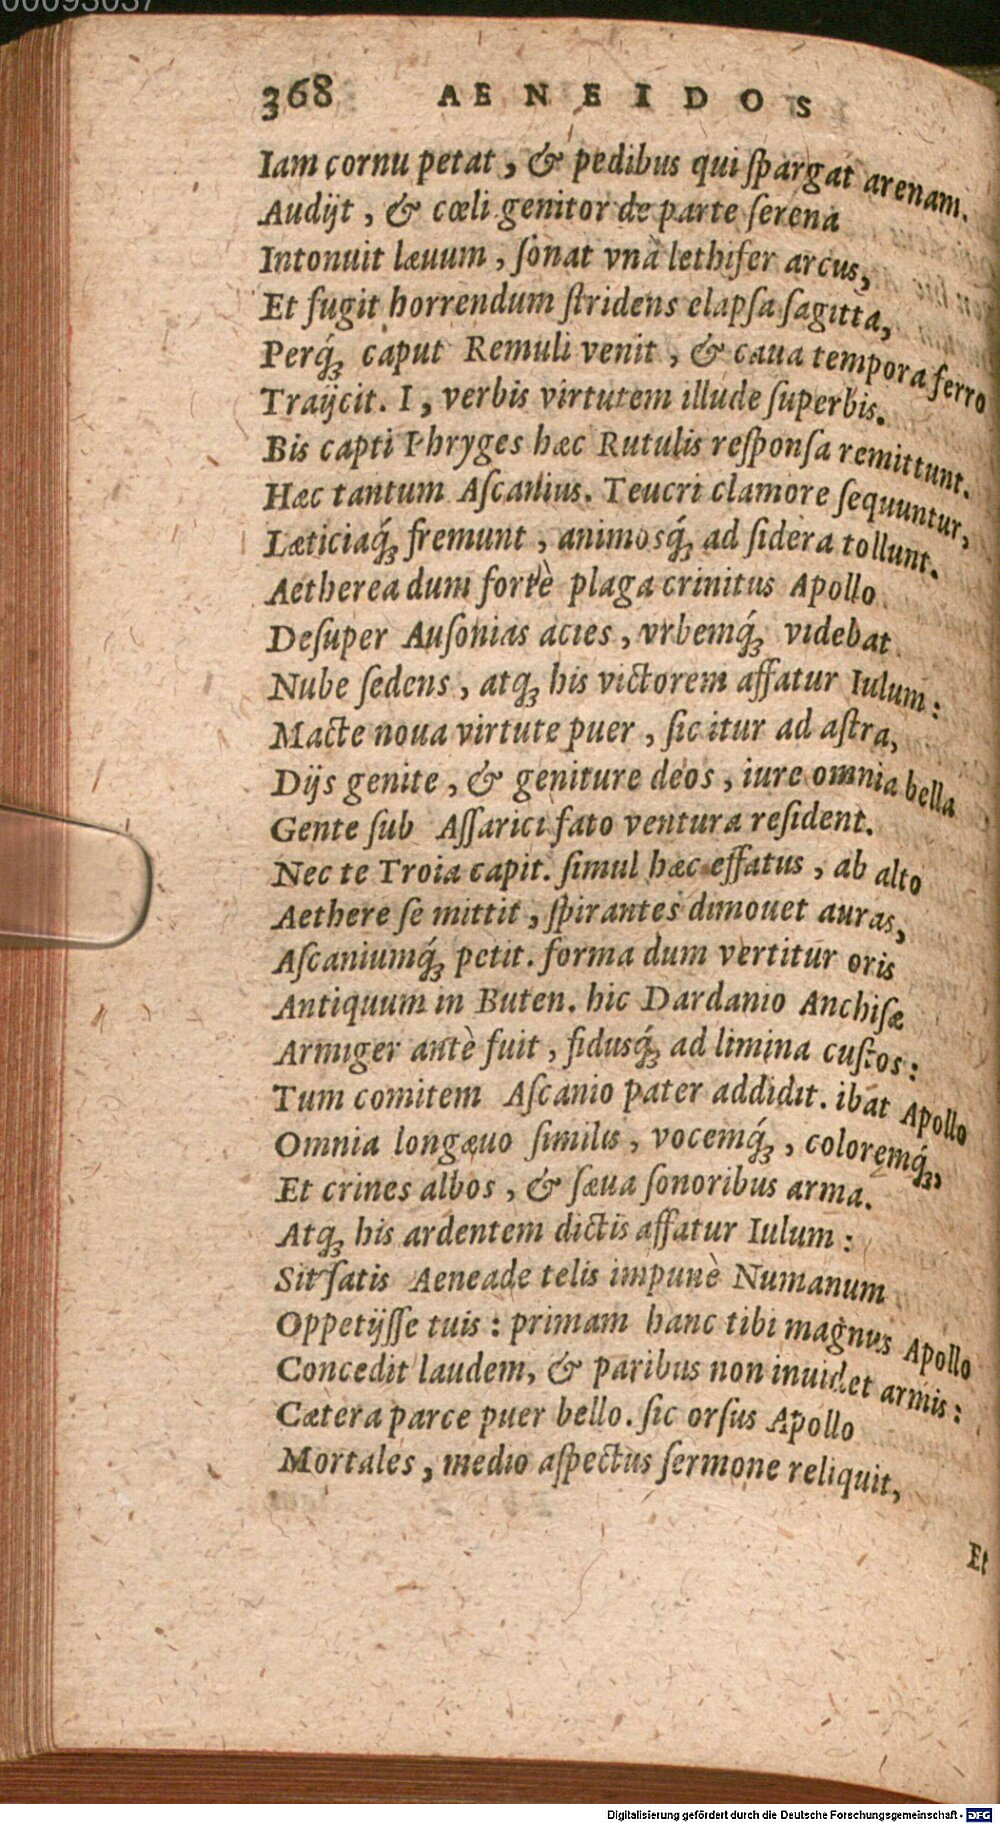 00093037
368 AENEIDOS
Iam cornu petat, & pedibus qui ſpargat arenam.
Audijt, & cœli genitor de parte ſerena
Intonuit læuum, ſonat vnà lethifer arcus,
Et fugit horrendum ſtridens elapſa ſagitta,
Perq́ꝫ caput Remuli venit, & caua tempora ferro
Traijcit. I, verbis virtutem illude ſuperbis.
Bis capti Phryges hæc Rutulis reſponſa remittunt.
Hæc tantum Aſcanius. Teucri clamore ſequuntur,
Læticiaq́ꝫ fremunt, animosq́ꝫ ad ſidera tollunt.
Aetherea dum fortè plaga crinitus Apollo
Deſuper Auſonias acies, vrbemq́ꝫ videbat
Nube ſedens, atqꝫ his victorem affatur Iulum:
Macte noua virtute puer, ſic itur ad aſtra,
Dijs genite, & geniture deos, iure omnia bella
Gente ſub Aſſarici fato ventura reſident.
Nec te Troia capit. ſimul hæc effatus, ab alto
Aethere ſe mittit, ſpirantes dimouet auras,
Aſcaniumq́ꝫ petit. forma dum vertitur oris
Antiquum in Buten. hic Dardanio Anchiſæ
Armiger antè fuit, fidusq́ꝫ ad limina cuſtos:
Tum comitem Aſcanio pater addidit. ibat Apollo
Omnia longæuo ſimilis, vocemq́ꝫ, coloremq́ꝫ,
Et crines albos, & ſæua ſonoribus arma.
Atqꝫ his ardentem dictis affatur Iulum:
Sit ſatis Aeneade telis impunè Numanum
Oppetijſſe tuis: primam hanc tibi magnus Apollo
Concedit laudem, & paribus non inuidet armis:
Cætera parce puer bello. ſic orſus Apollo
Mortales, medio aſpectus ſermone reliquit,
Et
Digitalisierung gefördert durch die Deutsche Forschungsgemeinschaft - DFG